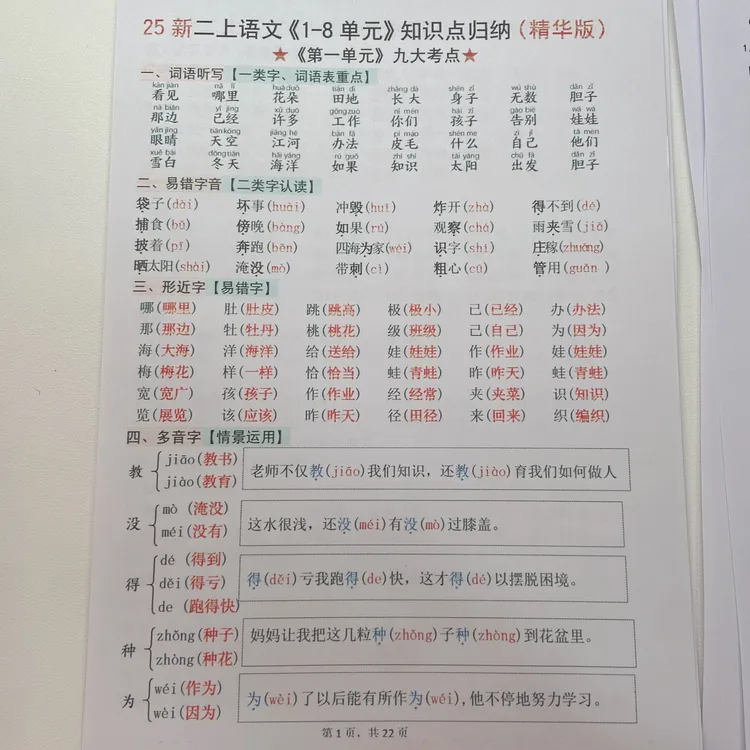 25新二上语文《1-8单元》知识点归纳（精华版）
★《第一单元》九大考点★
一、词语听写【一类字、词语表重点】
kàn jiàn nǎ lǐ huā duǒ tián dì zhǎng dà shēn zǐ wú shù dǎn zǐ
看见 哪里 花朵 田地 长大 身子 无数 胆子
nà biān yǐ jīng xǔ duō gōng zuò nǐ men hái zǐ gào bié wá wá
那边 已经 许多 工作 你们 孩子 告别 娃娃
yǎn jīng tiān kōng jiāng hé bàn fǎ pí máo shén me zì jǐ tā men
眼睛 天空 江河 办法 皮毛 什么 自己 他们
xuě bái dōng tiān hǎi yáng rú guǒ zhī shi tài yáng chū fā dǎn zǐ
雪白 冬天 海洋 如果 知识 太阳 出发 胆子
二、易错字音【二类字认读】
袋子(dài) 坏事(huài) 冲毁(huǐ) 炸开(zhà) 得不到(dé)
捕食(bǔ) 傍晚(bàng) 如果(rú) 观察(chá) 雨夹雪(jiā)
披着(pī) 奔跑(bēn) 四海为家(wéi) 识字(shí) 庄稼(zhuāng)
晒太阳(shài) 淹没(mò) 带刺(cì) 粗心(cū) 管用(guǎn )
三、形近字【易错字】
哪(哪里) 肚(肚皮) 跳(跳高) 极(极小) 已(已经) 办(办法)
那(那边) 牡(牡丹) 桃(桃花) 级(班级) 己(自己) 为(因为)
海(大海) 洋(海洋) 给(送给) 娃(娃娃) 作(作业) 娃(娃娃)
梅(梅花) 样(一样) 恰(恰当) 蛙(青蛙) 昨(昨天) 蛙(青蛙)
宽(宽广) 孩(孩子) 作(作业) 经(经常) 夹(夹菜) 识(知识)
览(展览) 该(应该) 昨(昨天) 径(田径) 来(回来) 织(编织)
四、多音字【情景运用】
教 jiāo(教书) jiào(教育)
老师不仅教(jiāo)我们知识，还教(jiào)育我们如何做人
没 mò (淹没) méi(没有)
这水很浅，还没(méi)有没(mò)过膝盖。
得 dé (得到) děi(得亏) de (跑得快)
得(děi)亏我跑得(de)快，这才得(dé)以摆脱困境。
种 zhǒng(种子) zhòng(种花)
妈妈让我把这几粒种(zhǒng)子种(zhòng)到花盆里。
为 wéi(作为) wèi(因为)
为(wèi)了以后能有所作为(wéi),他不停地努力学习。
第1页，共22页